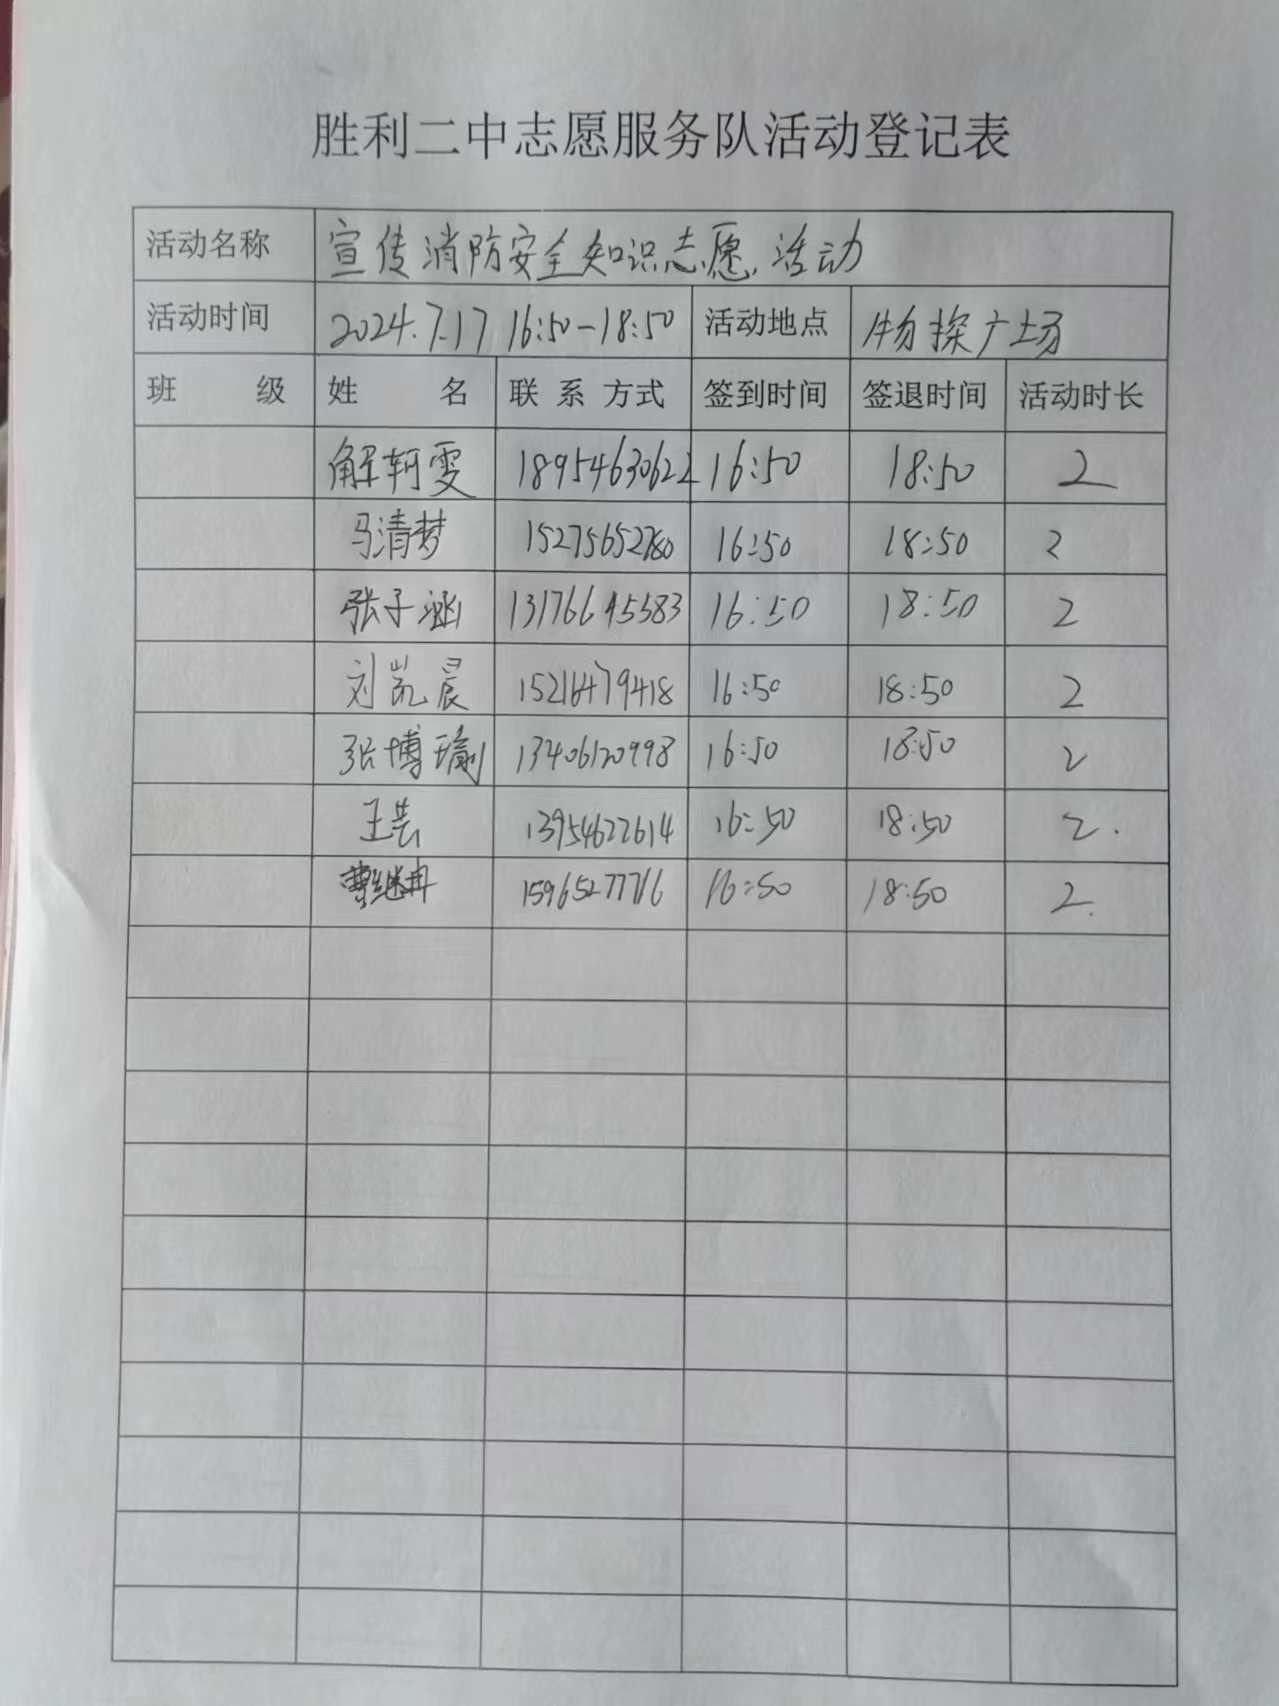 胜利二中志愿服务队活动登记表
活动名称 宣传消防安全知识志愿活动
活动时间 2024.7.17 16:50-18:50 活动地点 物探广场
班 级 姓 名 联 系 方式 签到时间 签退时间 活动时长
解轲雯 18954630622 16:50 18:50 2
马清梦 15275652780 16:50 18:50 2
张子涵 13176645583 16:50 18:50 2
刘凯晨 15216479418 16:50 18:50 2
张博瑜 13406120998 16:50 18:50 2
王芸 13954622614 16:50 18:50 2.
曹继冉 15965277716 16:50 18:50 2.